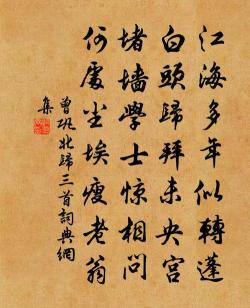 江海多年似轉蓬
白頭歸拜未央宮
堵墻學士驚相問
何處塵埃瘦老翁
曾鞏北歸三首詞典網
集